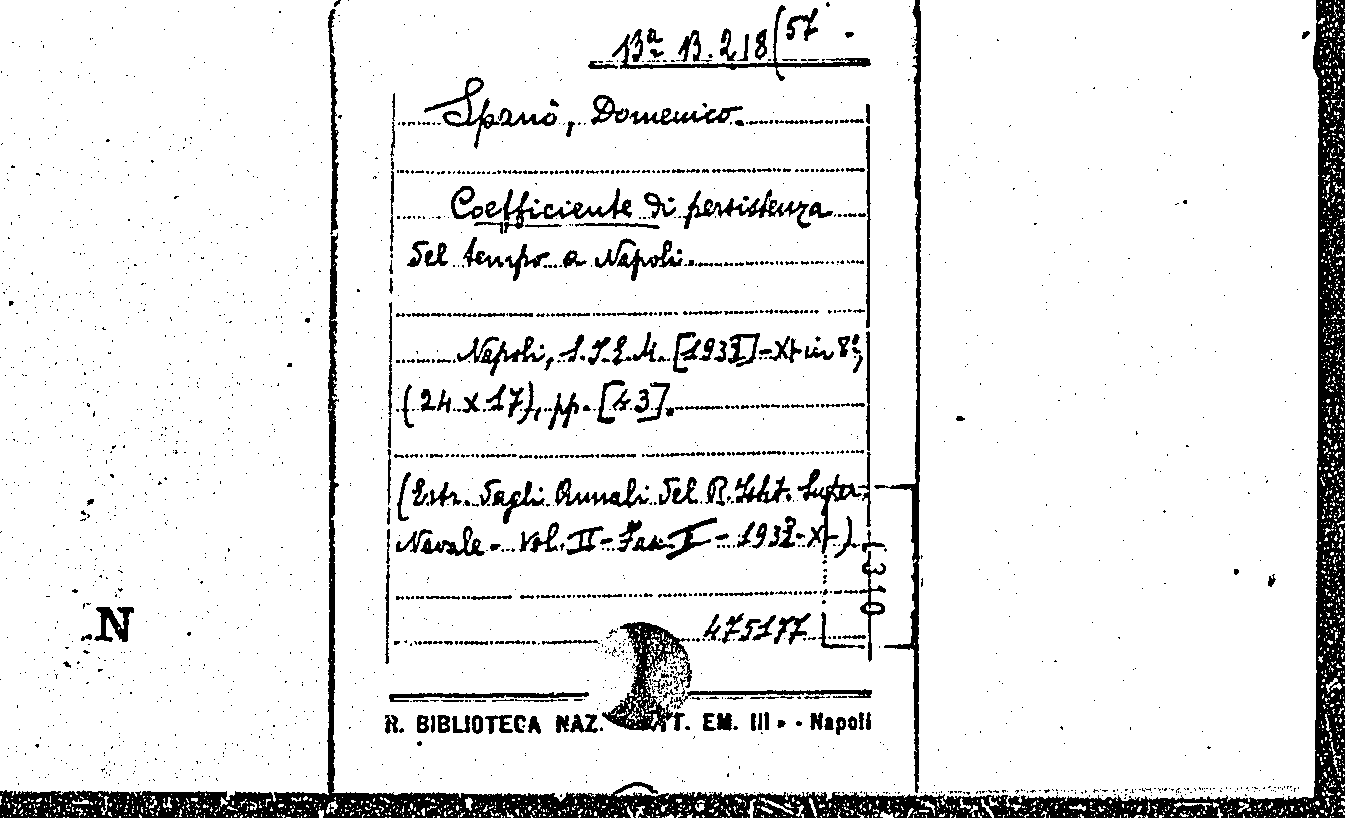 13ª 13.218(57.
Spanò, Domenico.
Coefficiente di persistenza
del tempo a Napoli.
Napoli, S.I.E.M. [1932]-XI in 8º,
(24 x 17), pp. [43].
(Estr. dagli Annali del R. Istit. Super.
Navale - Vol. II - Fasc. I - 1932-XI-)
1310
475177
N
R. BIBLIOTECA NAZ. T. EM. III - Napoli